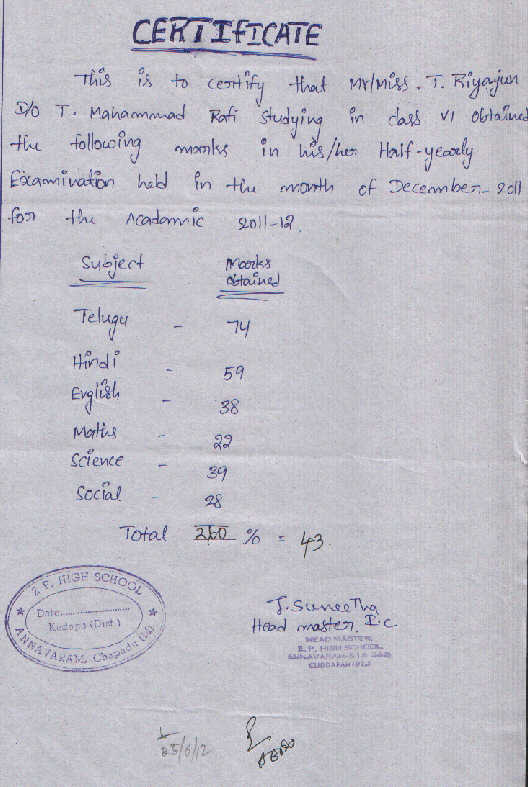 CERTIFICATE
This is to certify that Mr/Miss. T. Riyajun
D/o T. Mahammad Rafi Studying in class VI Obtained
the following marks in his/her Half-yearly
Examination held in the month of December-2011
for the Acadamic 2011-12.
Subject Marks
obtained
Telugu - 74
Hindi - 59
English - 38
Maths - 22
Science - 39
Social - 28
Total 260 % = 43
Z.P. HIGH SCHOOL
Date
Kadapa (Dist.)
ANNAVARAM, Chapadu (M)
J. Suneetha
Head master, I.c.
HEAD MASTER
Z.P. HIGH SCHOOL
CUDDAPAH